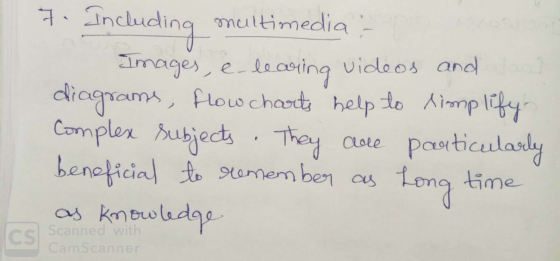 7. Including multimedia :-
Images, e-learing videos and
diagrams, flowcharts help to simplify
Complex subjects. They are particularly
beneficial to remember as Long time
as knowledge.
CS Scanned with
CamScanner